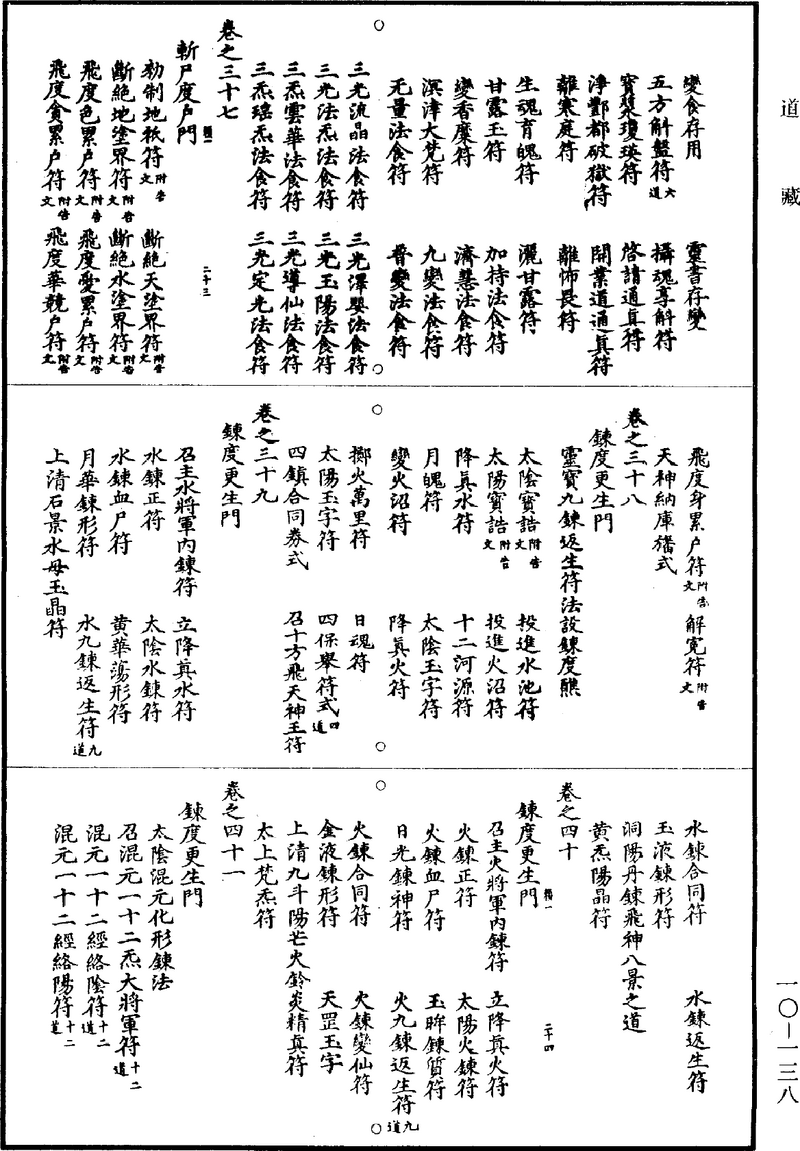 道藏
變食存用　靈書存變
五方斛盤符六道　攝魂享斛符
寶漿瓊瑛符　啓請通真符
淨酆都破獄符　開業道通真符
離寒庭符　離怖畏符
生魂育魄符　灑甘露符
甘露玉符　加持法食符
變香糜符　濟慧法食符
溟津大梵符　九變法食符
无量法食符　普變法食符
三光流晶法食符　三光澤嬰法食符
三光法炁法食符　三光玉陽法食符
三炁雲華法食符　三光導仙法食符
三炁瑤炁法食符　三光定光法食符
卷之三十七
斬尸度户門
二十三
劾制地祇符附告文　斷絕天塗界符附告文
斷絕地塗界符附告文　斷絕水塗界符附告文
飛度色累户符附告文　飛度愛累户符附告文
飛度貪累户符附告文　飛度華競户符附告文
飛度身累户符附告文　解寃符附告文
天神納庫旛式
卷之三十八
鍊度更生門
靈寶九鍊返生符法設鍊度醮
太陰寶誥附告文　投進水池符
太陽寶誥附告文　投進火沼符
降真水符　十二河源符
月魄符　太陰玉字符
變火沼符　降真火符
擲火萬里符　日魂符
太陽玉字符　四保舉符式四道
四鎮合同券式　召十方飛天神王符
卷之三十九
鍊度更生門
召主水將軍內鍊符　立降真水符
水鍊正符　太陰水鍊符
水鍊血尸符　黄華蕩形符
月華鍊形符　水九鍊返生符九道
上清石景水母玉晶符
水鍊合同符　水鍊返生符
玉液鍊形符
洞陽丹鍊飛神八景之道
黄炁陽晶符
卷之四十
鍊度更生門
二十四
召主火將軍內鍊符　立降真火符
火鍊正符　太陽火鍊符
火鍊血尸符　玉眸鍊質符
日光鍊神符　火九鍊返生符九道
火鍊合同符　火鍊變仙符
金液鍊形符　天罡玉字
上清九斗陽芒火鈴炎精真符
太上梵炁符
卷之四十一
鍊度更生門
太陰混元化形鍊法
召混元一十二炁大將軍符十二道
混元一十二經絡陰符十二道
混元一十二經絡陽符十二道
一〇—一三八